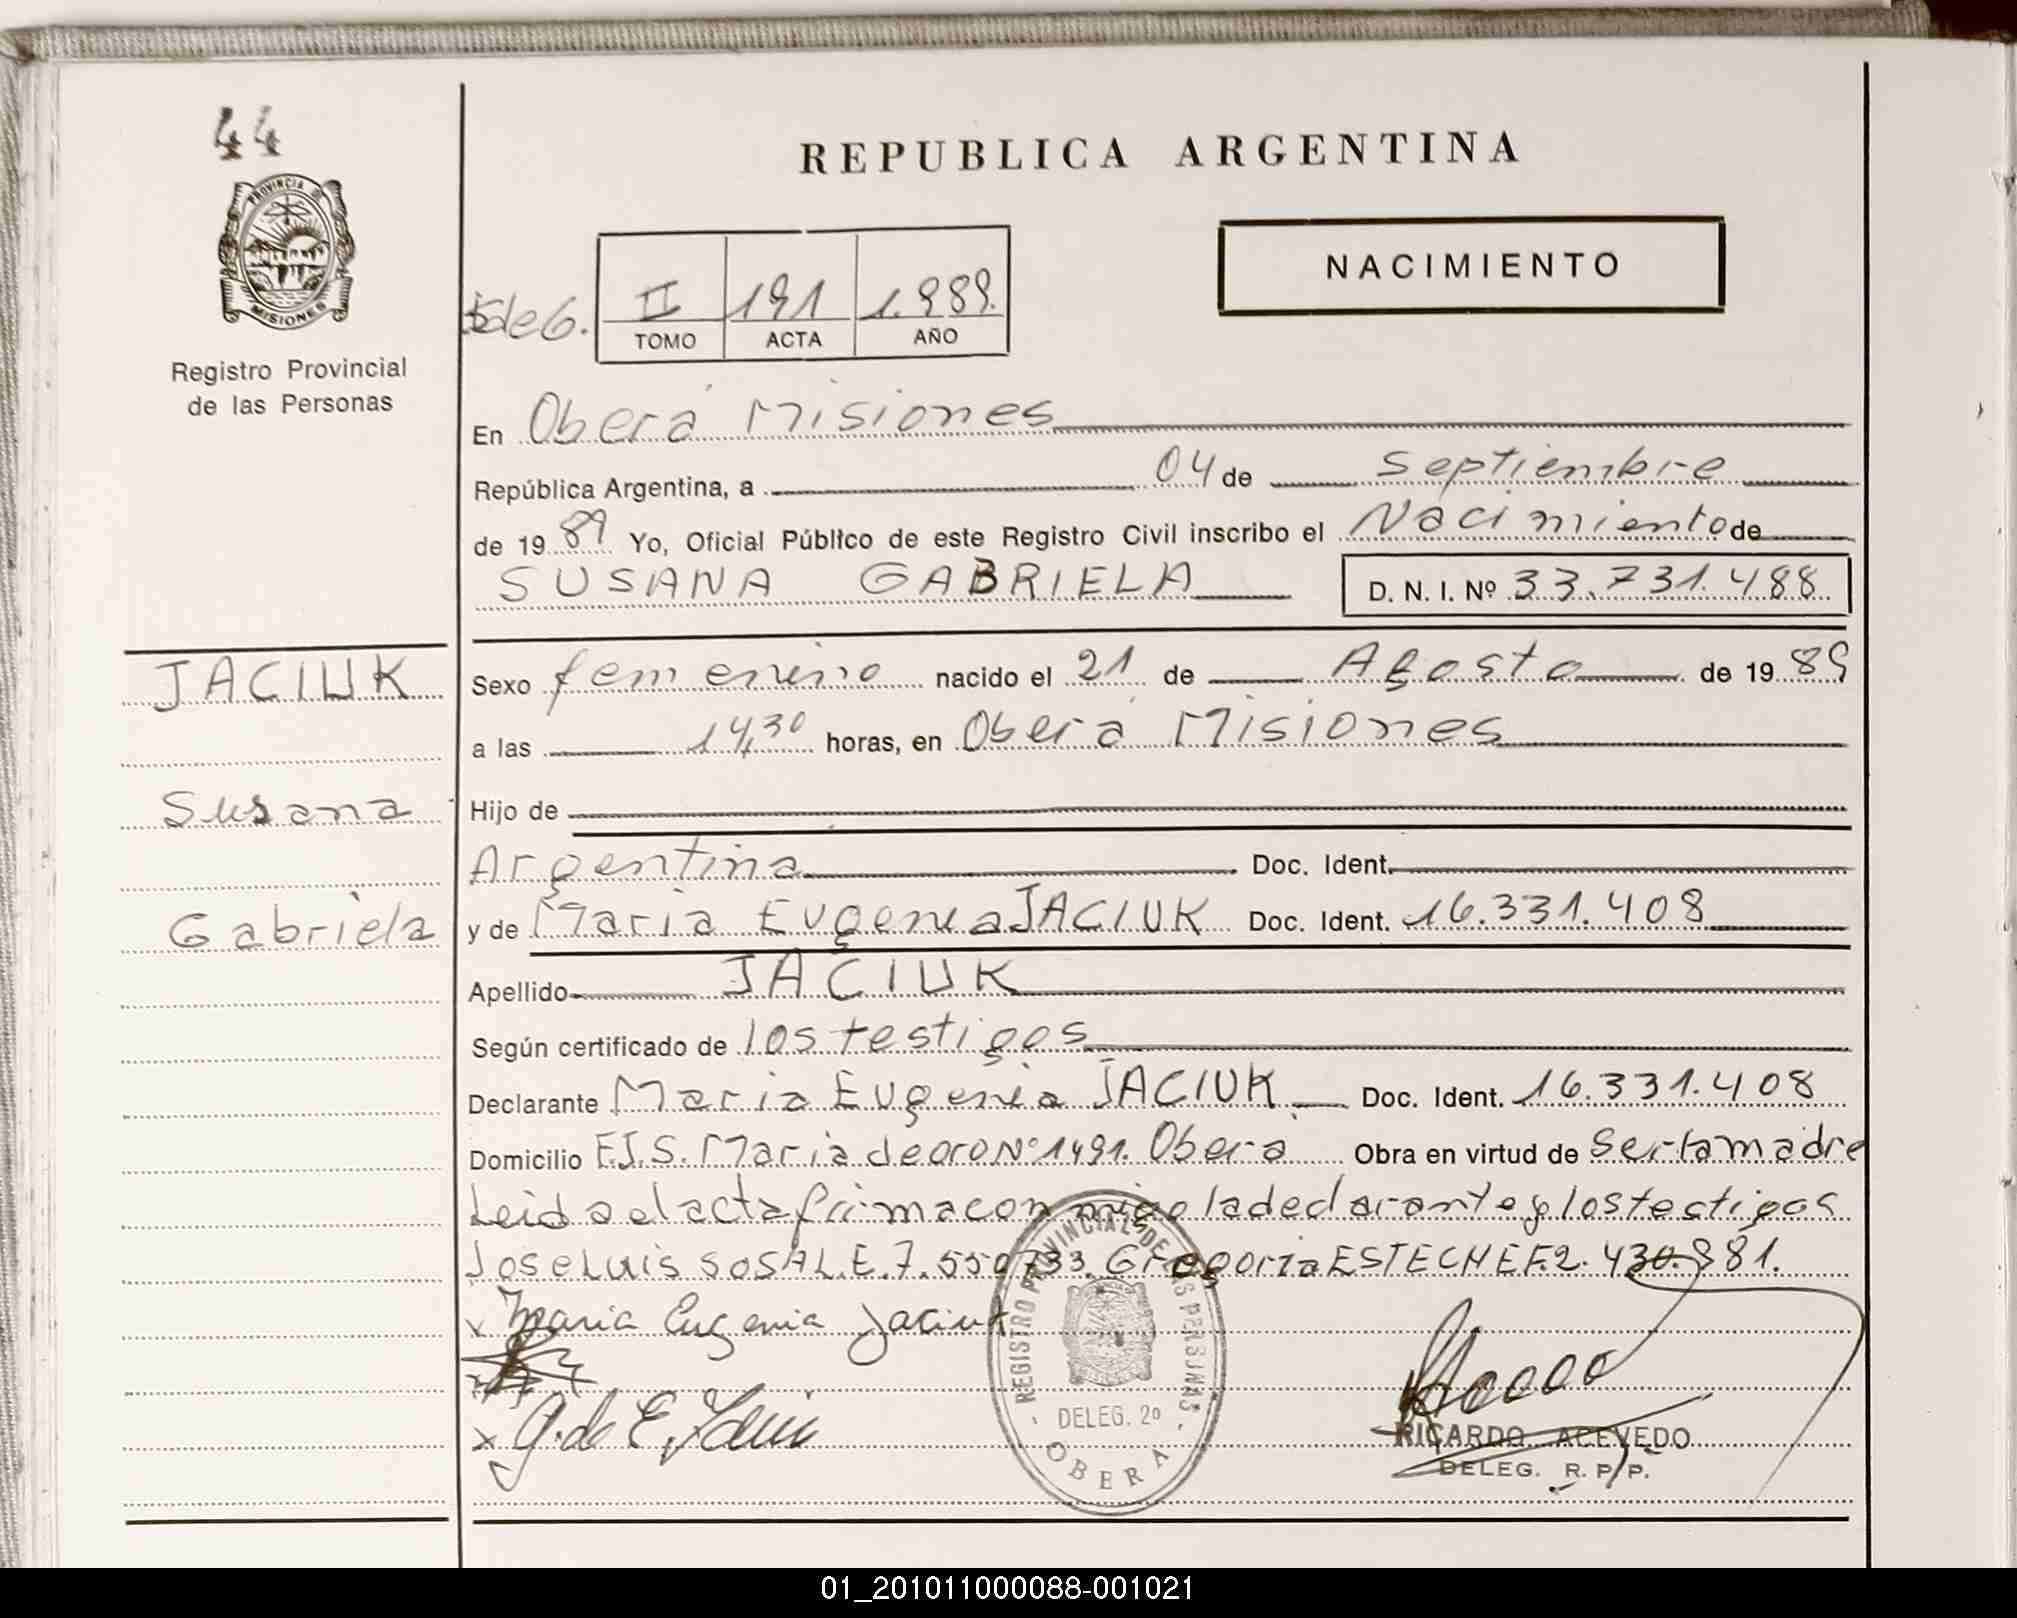 44
PROVINCIA D
MISIONES
Registro Provincial
de las Personas
REPUBLICA ARGENTINA
NACIMIENTO
II 191 1.989.
TOMO ACTA AÑO
En Oberá Misiones
República Argentina, a 04 de Septiembre
de 1989 Yo, Oficial Público de este Registro Civil inscribo el Nacimiento de
SUSANA GABRIELA D. N. I. Nº 33.731.488
JACIUK
Susana
Gabriela
Sexo femenino nacido el 21 de Agosto de 1989
a las 14,30 horas, en Oberá Misiones
Hijo de
Argentina Doc. Ident.
y de Maria Eugenia JACIUK Doc. Ident. 16.331.408
Apellido JACIUK
Según certificado de los testigos
Declarante Maria Eugenia JACIUK Doc. Ident. 16.331.408
Domicilio F.J.S. Maria de oro Nº 1491. Oberá Obra en virtud de Ser la madre
Leida el acta firma con migo la declarante y los testigos
Jose Luis SOSA L.E. 7.550733. Gregoria ESTECHE F.2.430.881.
x Maria Eugenia Jaciuk
REGISTRO PROVINCIAL DE LAS PERSONAS
DELEG. 2º
OBERA
RICARDO ACEVEDO
DELEG. R. P. P.
01_201011000088-001021